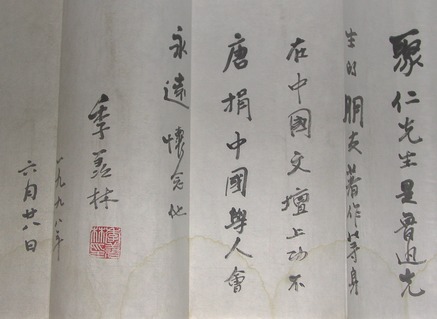 聚仁先生是魯迅先
生的朋友著作等身
在中國文壇上功不
唐捐中國學人會
永遠懷念他
季羨林
一九九八年
六月廿八日